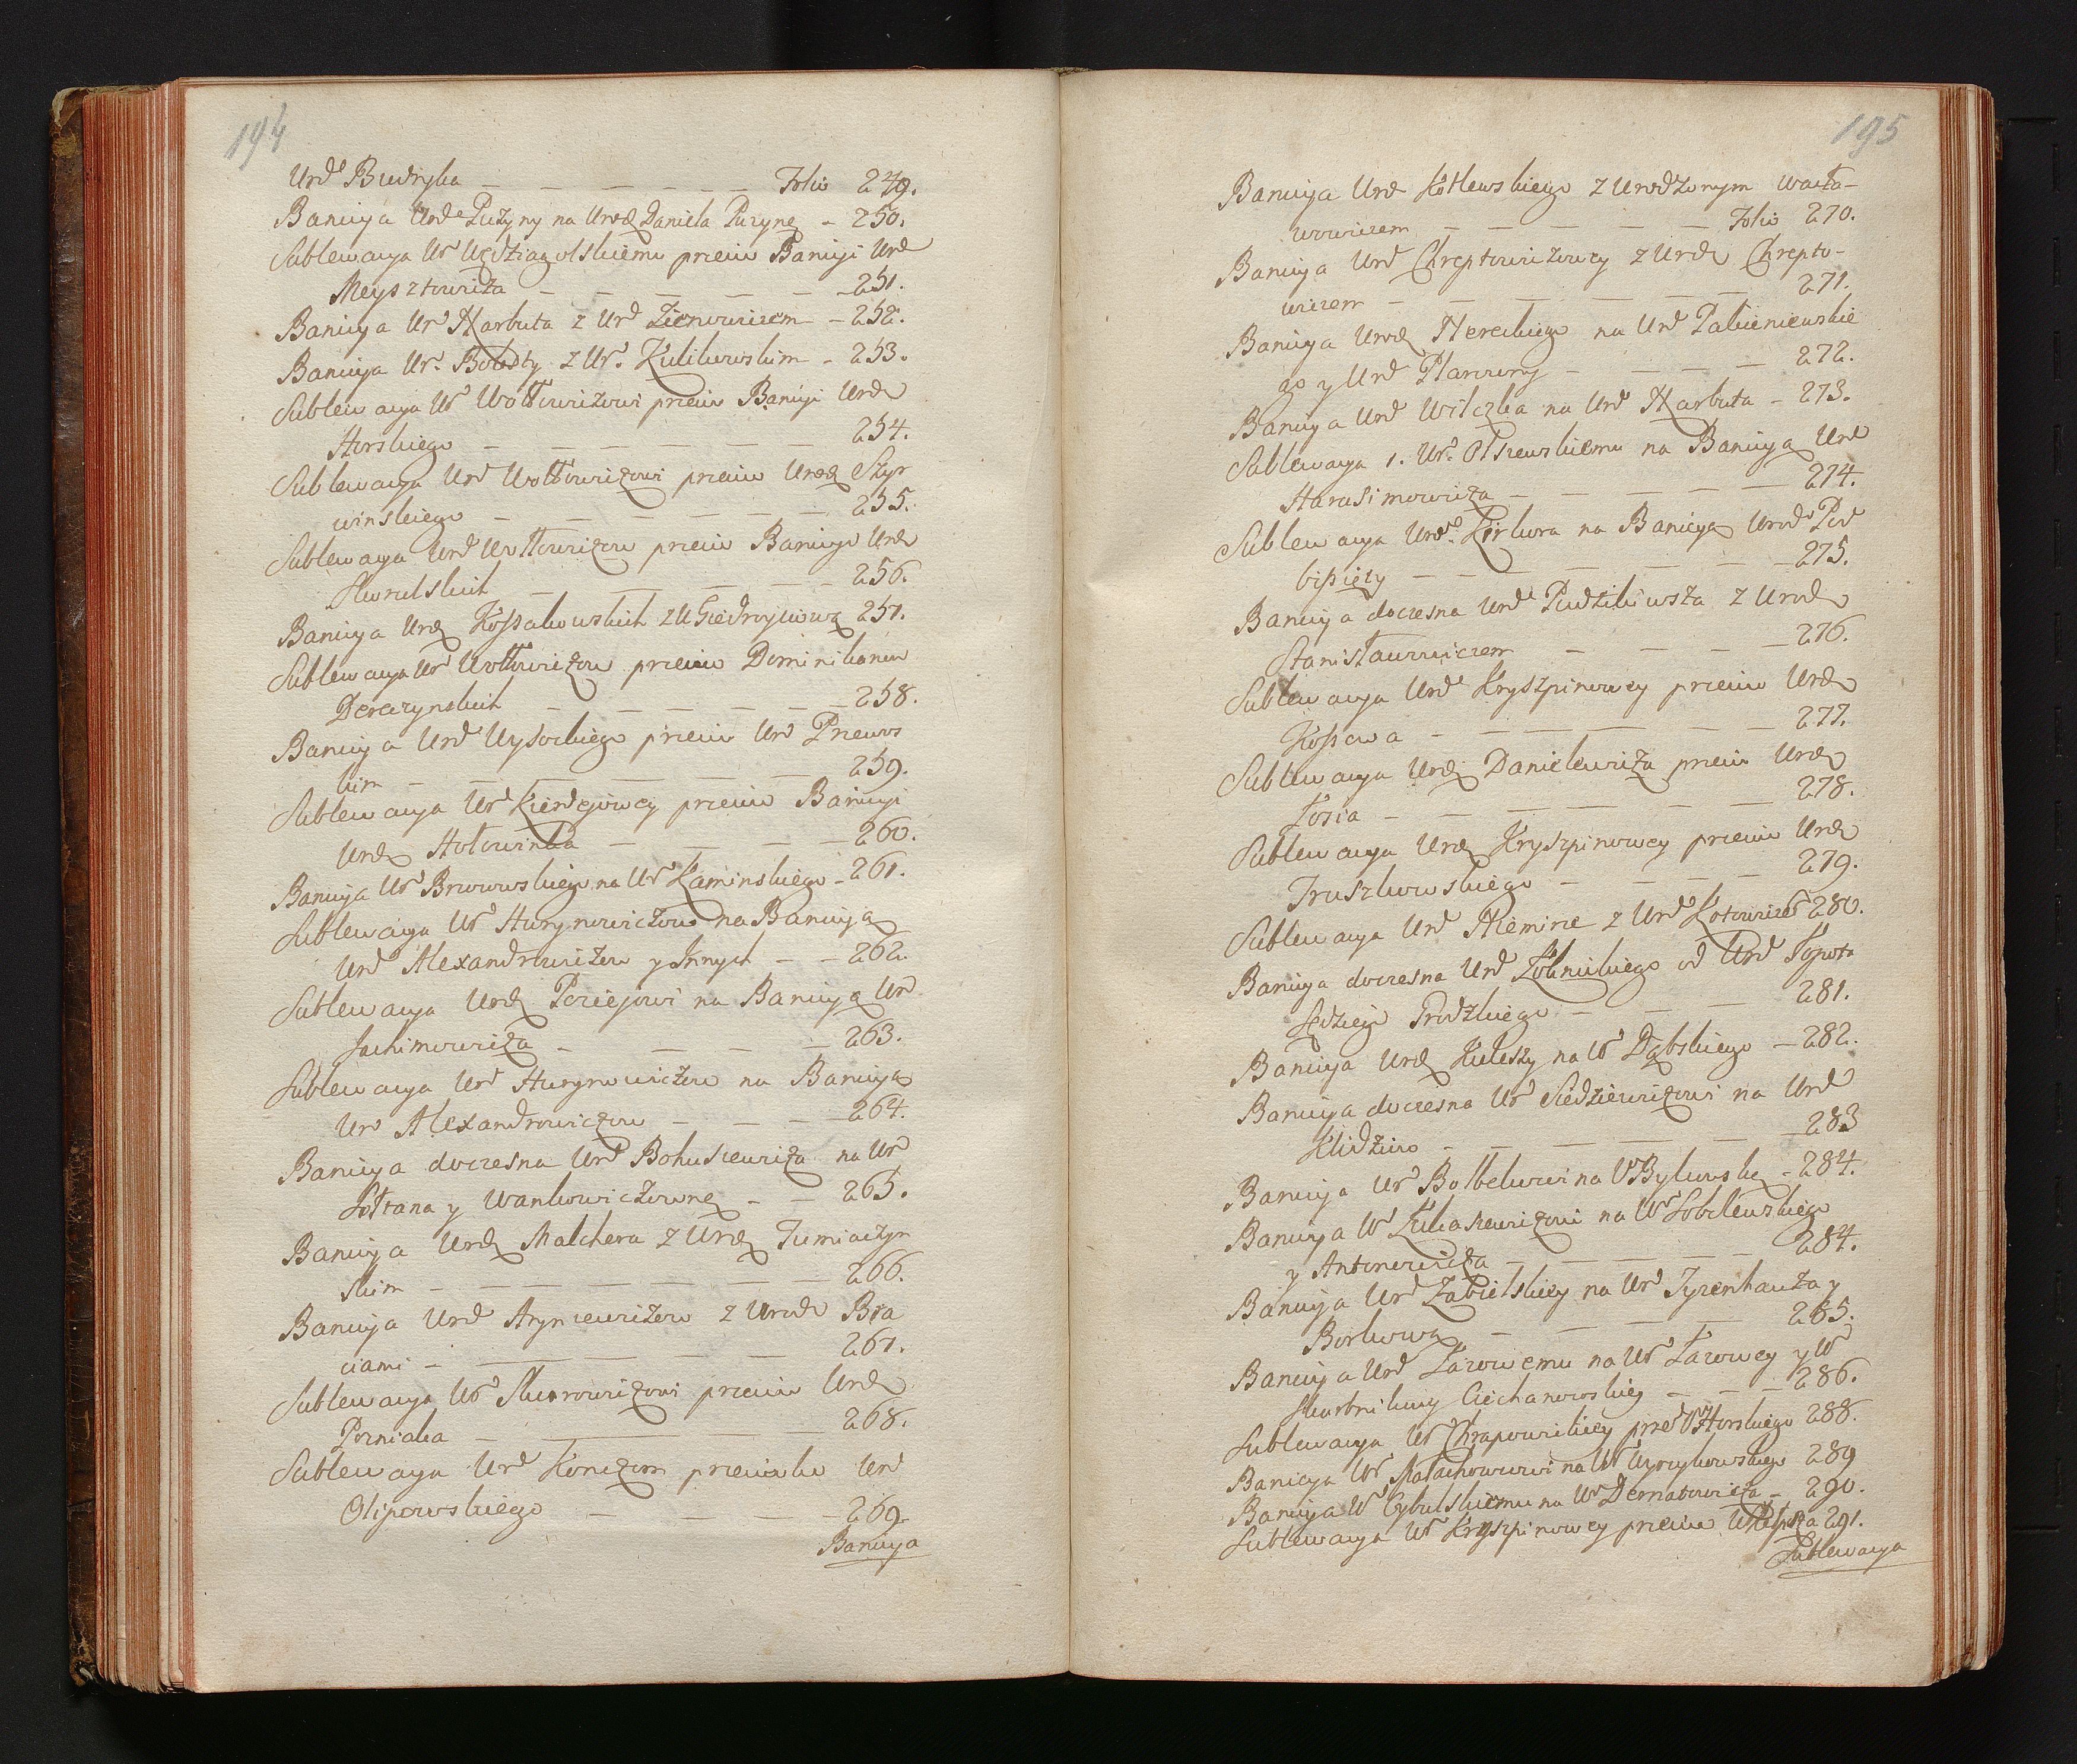 194
Urd Budryka — — — — — — Folio 249.
Banicya Urde Puzyny na Urodz Daniela Puzynę – 250.
Sublewacya Ur Wędziagolskiemu przeciw Banicyi Urd
Meysztowicza — — — — — 251.
Banicya Ur Narbuta z Urd Zienowiczem – 252.
Banicya Ur. z Ur. Kulikowskim – 253.
Sublewacya Ur Wołłowiczowi przeciw Banicyi Urdz
Horskiego — — — — — 254.
Sublewacya Urd Wołłowiczowi przeciw Urodz Szyr
winskiego — — — — — 255.
Sublewacya Urd Wołłowiczow przeciw Banicyi Urdz
— — — — 256.
Banicya Urdz Kossakowskich z U Giedroyciową 257.
Sublewacya Ur Wołłowiczow przeciw Dominikanow
Dereczynskich — — — — — 258.
Banicya Urd Wysockiego przeciw Urd Pruws
kim — — — — — — 259.
Sublewacya Ur Kierdejowey przeciw Banicyi
Urdz Hołowinka — — — — 260.
Banicya Ur Brwowskiego na Ur Kaminskiego – 261.
Sublewacya Ur Hurynowiczow na Banicyą
Urd Alexandrowiczow y Innych – – 262.
Sublewacya Urdz Pocieiowi na Banicyą Ur
Jachimowicza — — — — 263.
Sublewacya Urd Hurynowiczow na Banicyą
Ur Alexandrowiczow — — — 264.
Banicya doczesna Urd Bohuszewicza na Ur
Sołtana y Wankowiczownę – – 265.
Banicya Urdz Malchera z Urdz Tumiaczyn
skim — — — — — — 266.
Banicya Urd Arynzewiczow z Urodz Bra
ciami — — — — 267.
Sublewacya Ur przeciw Urdz
Pozniaka — — — 268.
Sublewacya Urd Konczom przeciwko Urd
Olipowskiego — — — — 269.
Banicya
195
Banicya Urd Kotlewskiego z Urodzonym Wacła-
wowiczem — — — — — Folio 270.
Banicya Urd Chreptowiczowey z Urdz Chrepto-
wiczem — — — — — — 271.
Banicya Urodz Hereckiego na Urd Pakieniewskie
go y Urd — — — — 272.
Banicya Urd Wilczka na Urd Narbuta – 273.
Sublewacya 1. Ur. Olszewskiemu na Banicyą Urd
Harasimowicza — — — — — 274.
Sublewacya Urd. Kirkora na Banicyą Urod Pod
bipięty — — — — — — 275.
Banicya doczesna Urd Pudzikiewicza z Urodz
Stanisławowiczem — — — — 276.
Sublewacya Urd Kryszpinowey przeciw Urdz
Kossowa — — — — — — 277.
Sublewacya Urdz Danielewicza przeciw Urdz
Łosia — — — — — — 278.
Sublewacya Urdz Kryszpinowey przeciw Urdz
Truszkowskiego — — — — 279.
Sublewacya Urd Niemirze z Urd Kotowicz 280.
Banicya doczesna Urd od Urd Łopota
Sędziego Grodzkiego — — — 281.
Banicya Urdz Kuleszy na Ur Dąbskiego – 282.
Banicya doczesna Ur Siedziewiczowi na Urd
— — — — — 283
Banicya Ur na U Bykowskę – 284.
Banicya Ur Łukaszewiczowi na Ur Sobolewskiego
y Antonowicza — — — — — 284.
Banicya Urd Zabielskiey na Urd Tyzenhauza y
Borkową — — — — — 285.
Banicya Urd Łazowemu na Ur Łazowey y Ur
Skarbnikowy Ciechanowskiey — — — 286.
Sublewacya Ur Chrapowickiey prze Ur Horskiego 288.
Banicya Ur Małachowcowi na Ur 289
Banicya Ur Cybulskiemu na Ur Dernatowicza – 290.
Sublewacya Ur Kryszpinowey przeciw 291.
Sublewacya